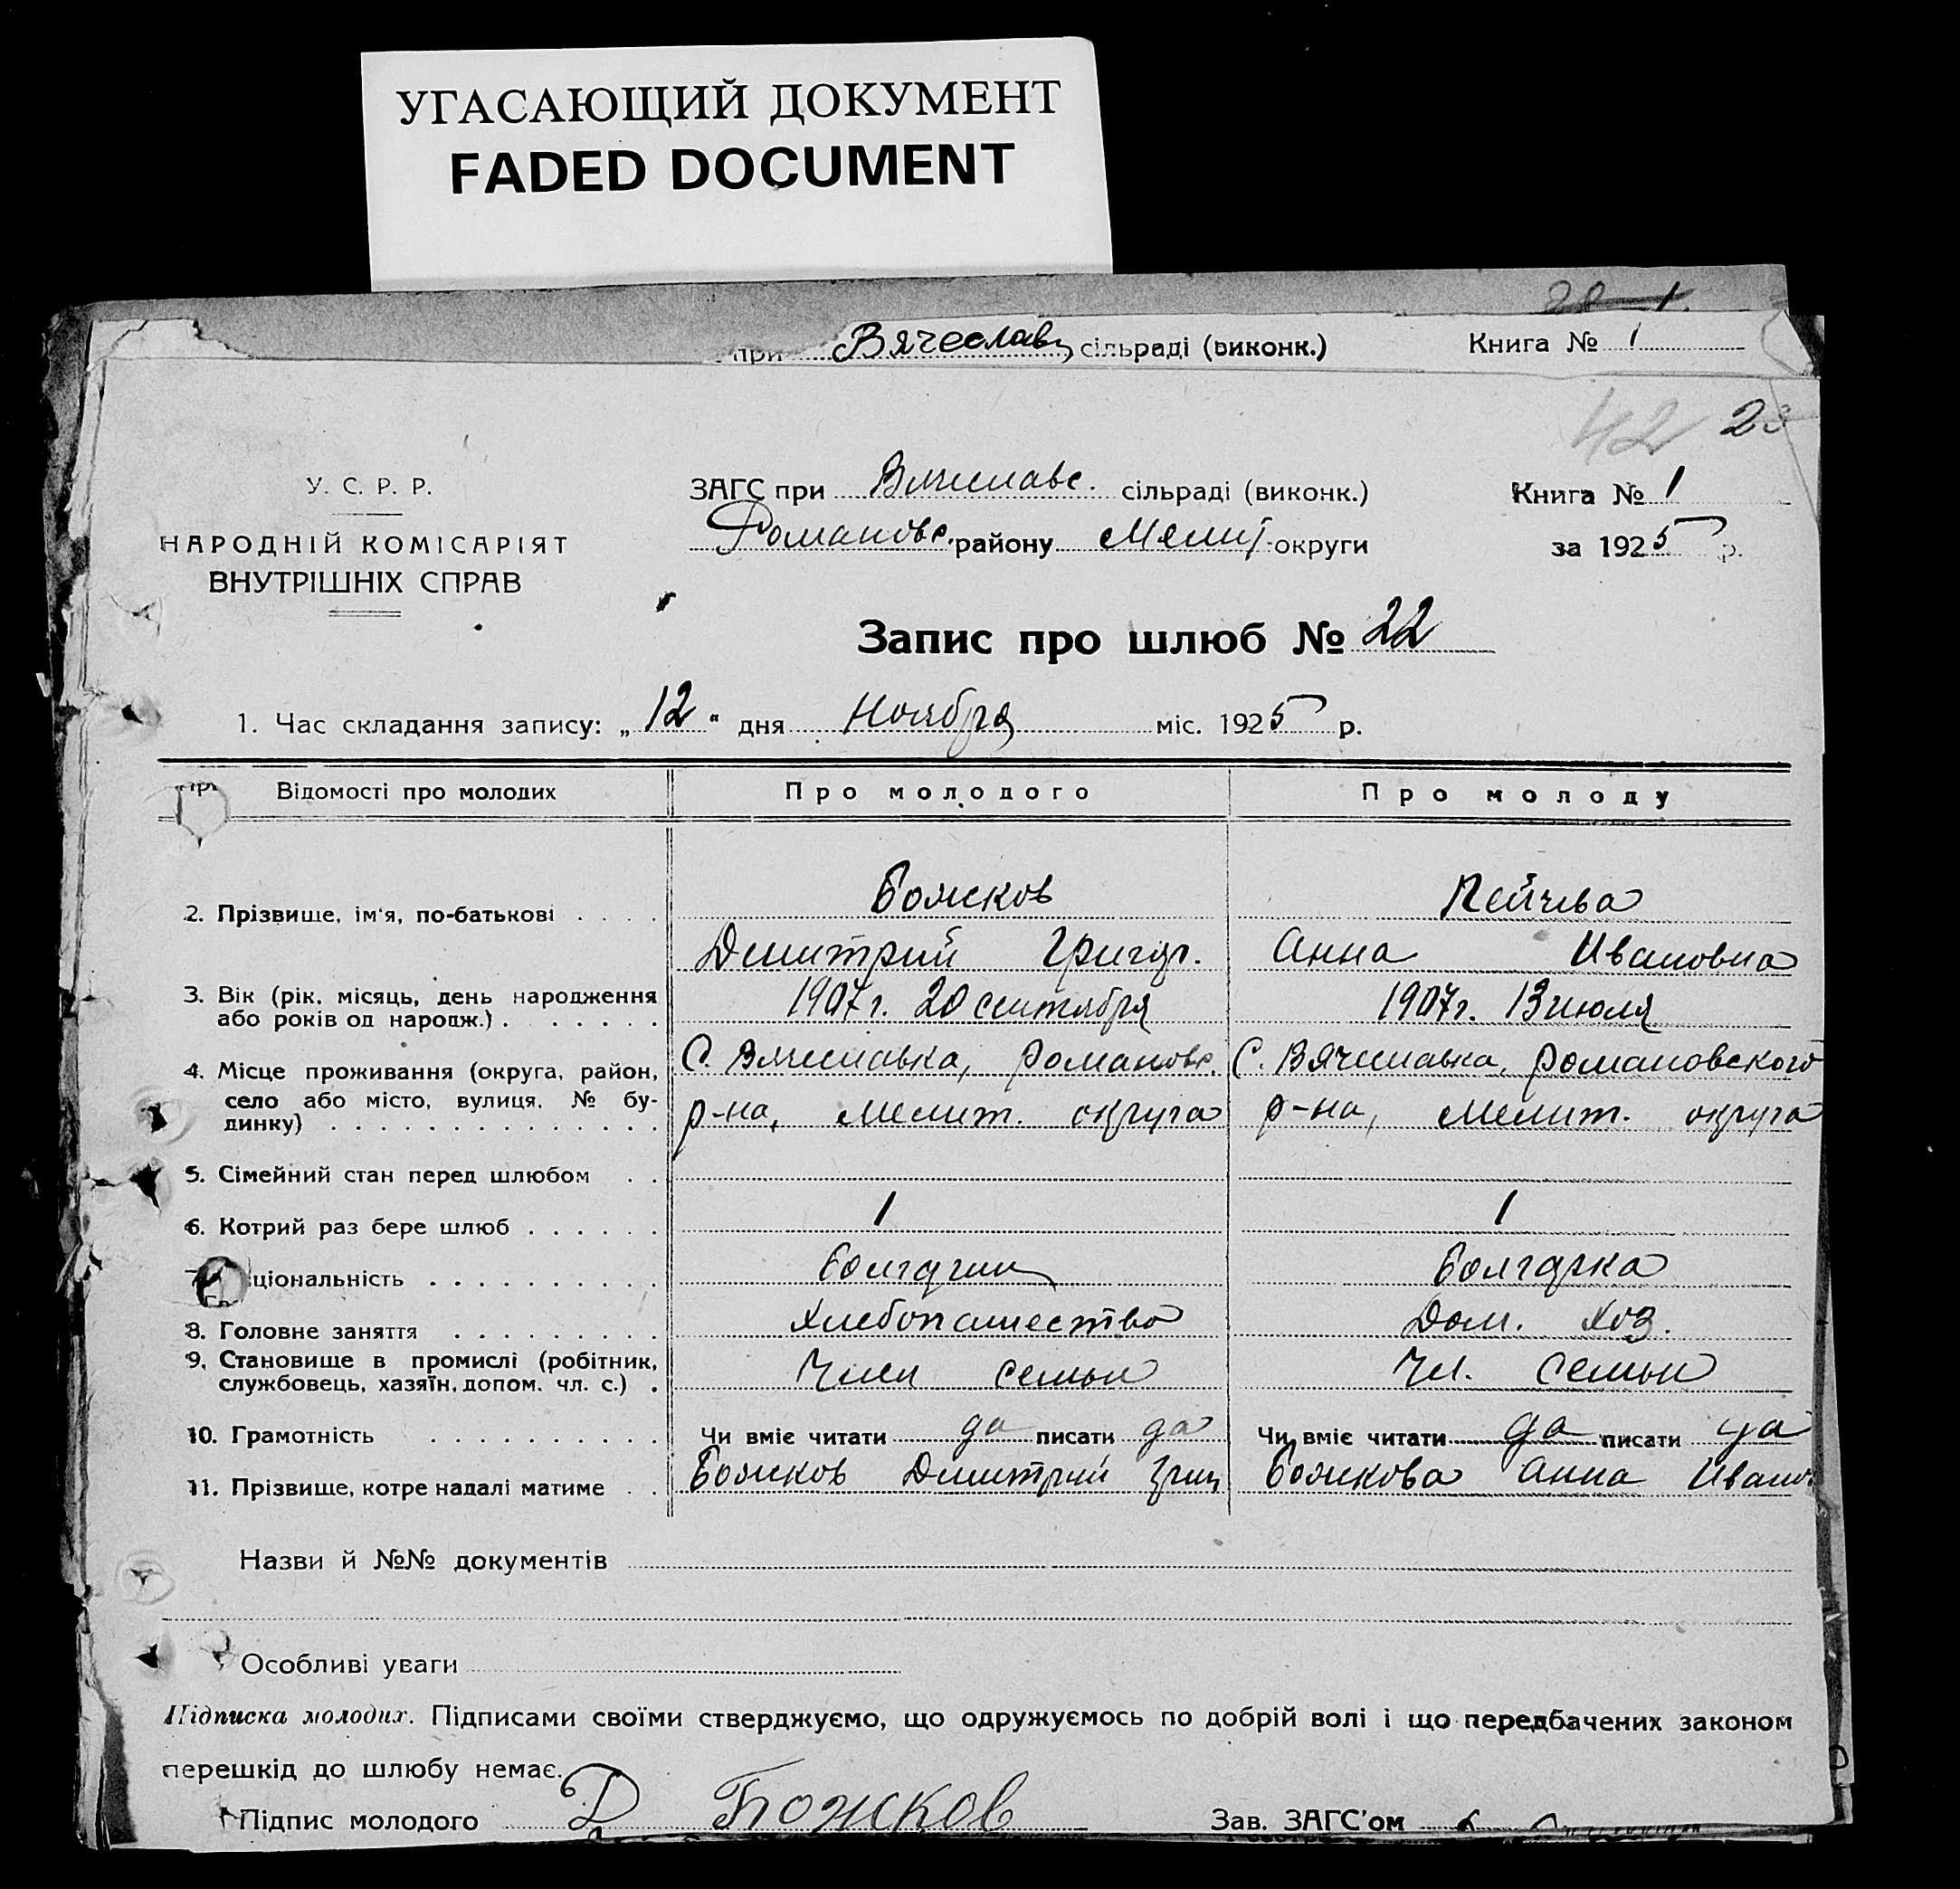 УГАСАЮЩИЙ ДОКУМЕНТ
FADED DOCUMENT
при Вячеславс, сільраді (виконк.) Книга № 1
42 23
У. С. Р. Р.
НАРОДНІЙ КОМІСАРІЯТ
ВНУТРІШНІХ СПРАВ
ЗАГС при Вячеславс. сільраді (виконк.) Книга № 1
Романовс. району Мелит. округи за 1925 р.
Запис про шлюб № 22
1. Час складання запису: „12“ дня Ноября міс. 1925 р.
Відомості про молодих Про молодого Про молоду
2. Прізвище, ім'я, по-батькові . . . . Божков Пейчева
Димитрий Григор. Анна Ивановна
3. Вік (рік, місяць, день народження
або років од народж.) . . . . . . 1907 г. 20 сентября 1907 г. 13 июля
4. Місце проживання (округа, район,
село або місто, вулиця, № бу-
динку) . . . . . . . . . . . . . .
С. Вячеславка, Романовс. С. Вячеславка, Романовского
р-на, Мелит. округа р-на, Мелит. округа
5. Сімейний стан перед шлюбом . .
6. Котрий раз бере шлюб . . . . . . 1 1
ціональність . . . . . . . . . . Болгарин Болгарка
8. Головне заняття . . . . . . . . . Хлебопашество Дом. хоз.
9. Становище в промислі (робітник,
службовець, хазяїн, допом. чл. с.) . Член семьи Чл. семьи
10. Грамотність . . . . . . . . . . Чи вміє читати да писати да Чи вміє читати да писати да
11. Прізвище, котре надалі матиме . . Божков Димитрий Григ Божкова Анна Ивано.
Назви й №№ документів
Особливі уваги
Підписка молодих. Підписами своїми стверджуємо, що одружуємось по добрій волі і що передбачених законом
перешкід до шлюбу немає.
Підпис молодого Д Божков Зав. ЗАГС'ом